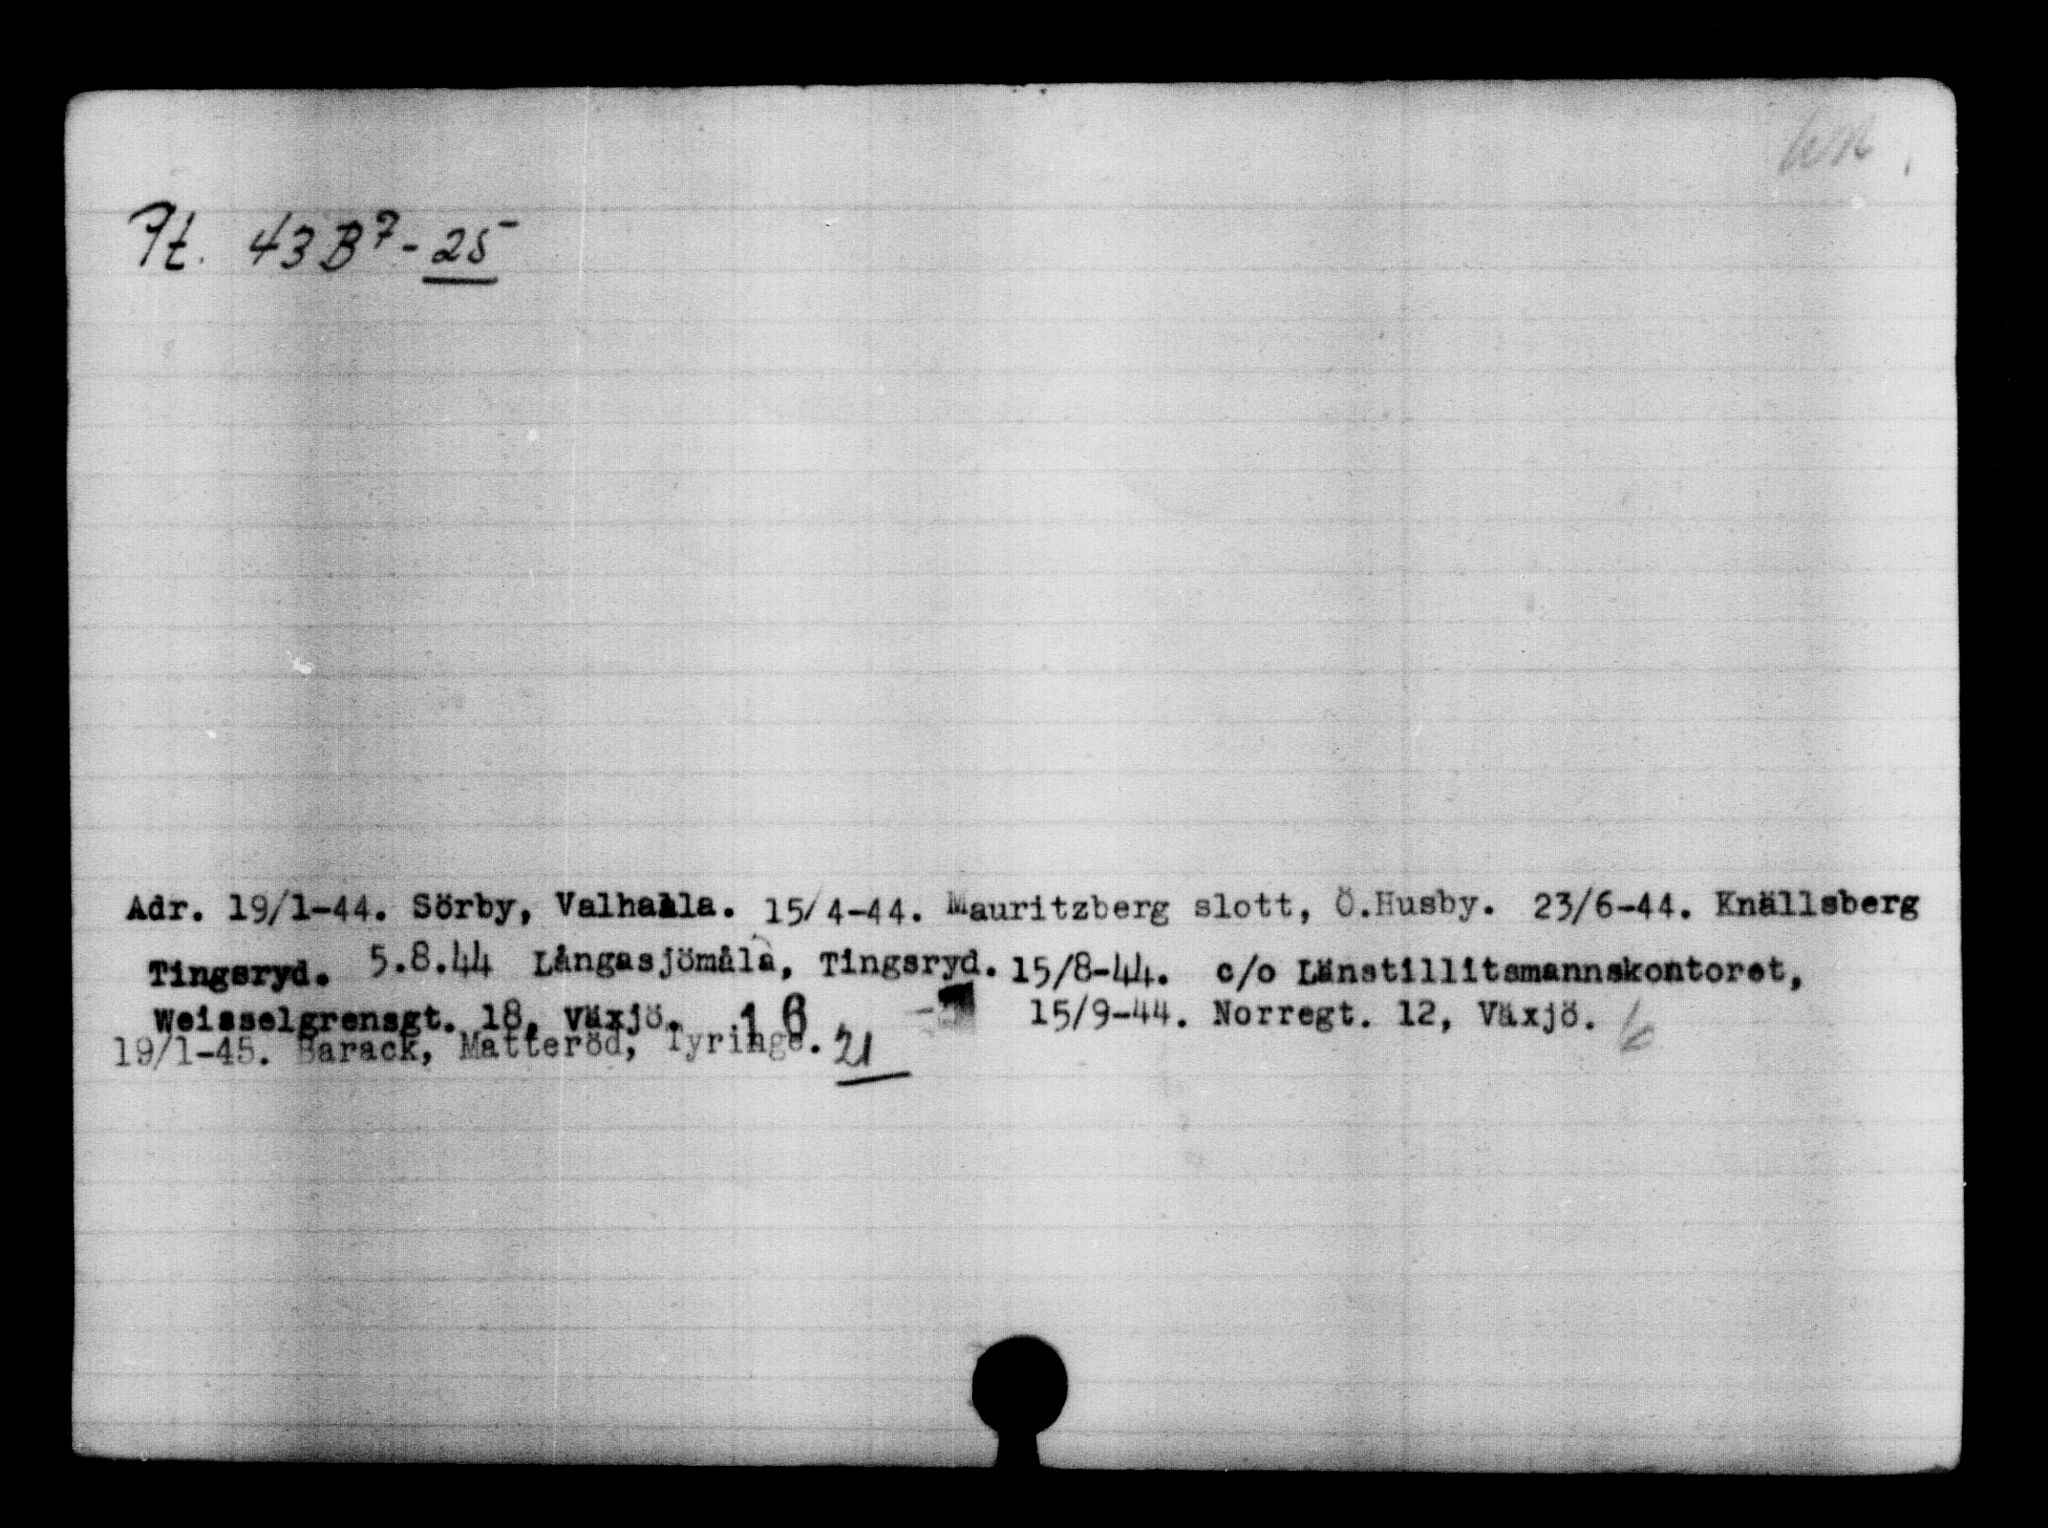 Pt. 43B7-25
Adr. 19/1-44. Sörby, Valhalla. 15/4-44. Mauritzberg slott, Ö.Husby. 23/6-44. Knällsberg
Tingsryd. 5.8.44 Långasjömåla, Tingsryd. 15/8-44. c/o Länstillitsmannskontoret,
Weisselgrensgt. 18, Växjö. 16 15/9-44. Norregt. 12, Växjö.
19/1-45. Barack, Matteröd, Tyringe. 21